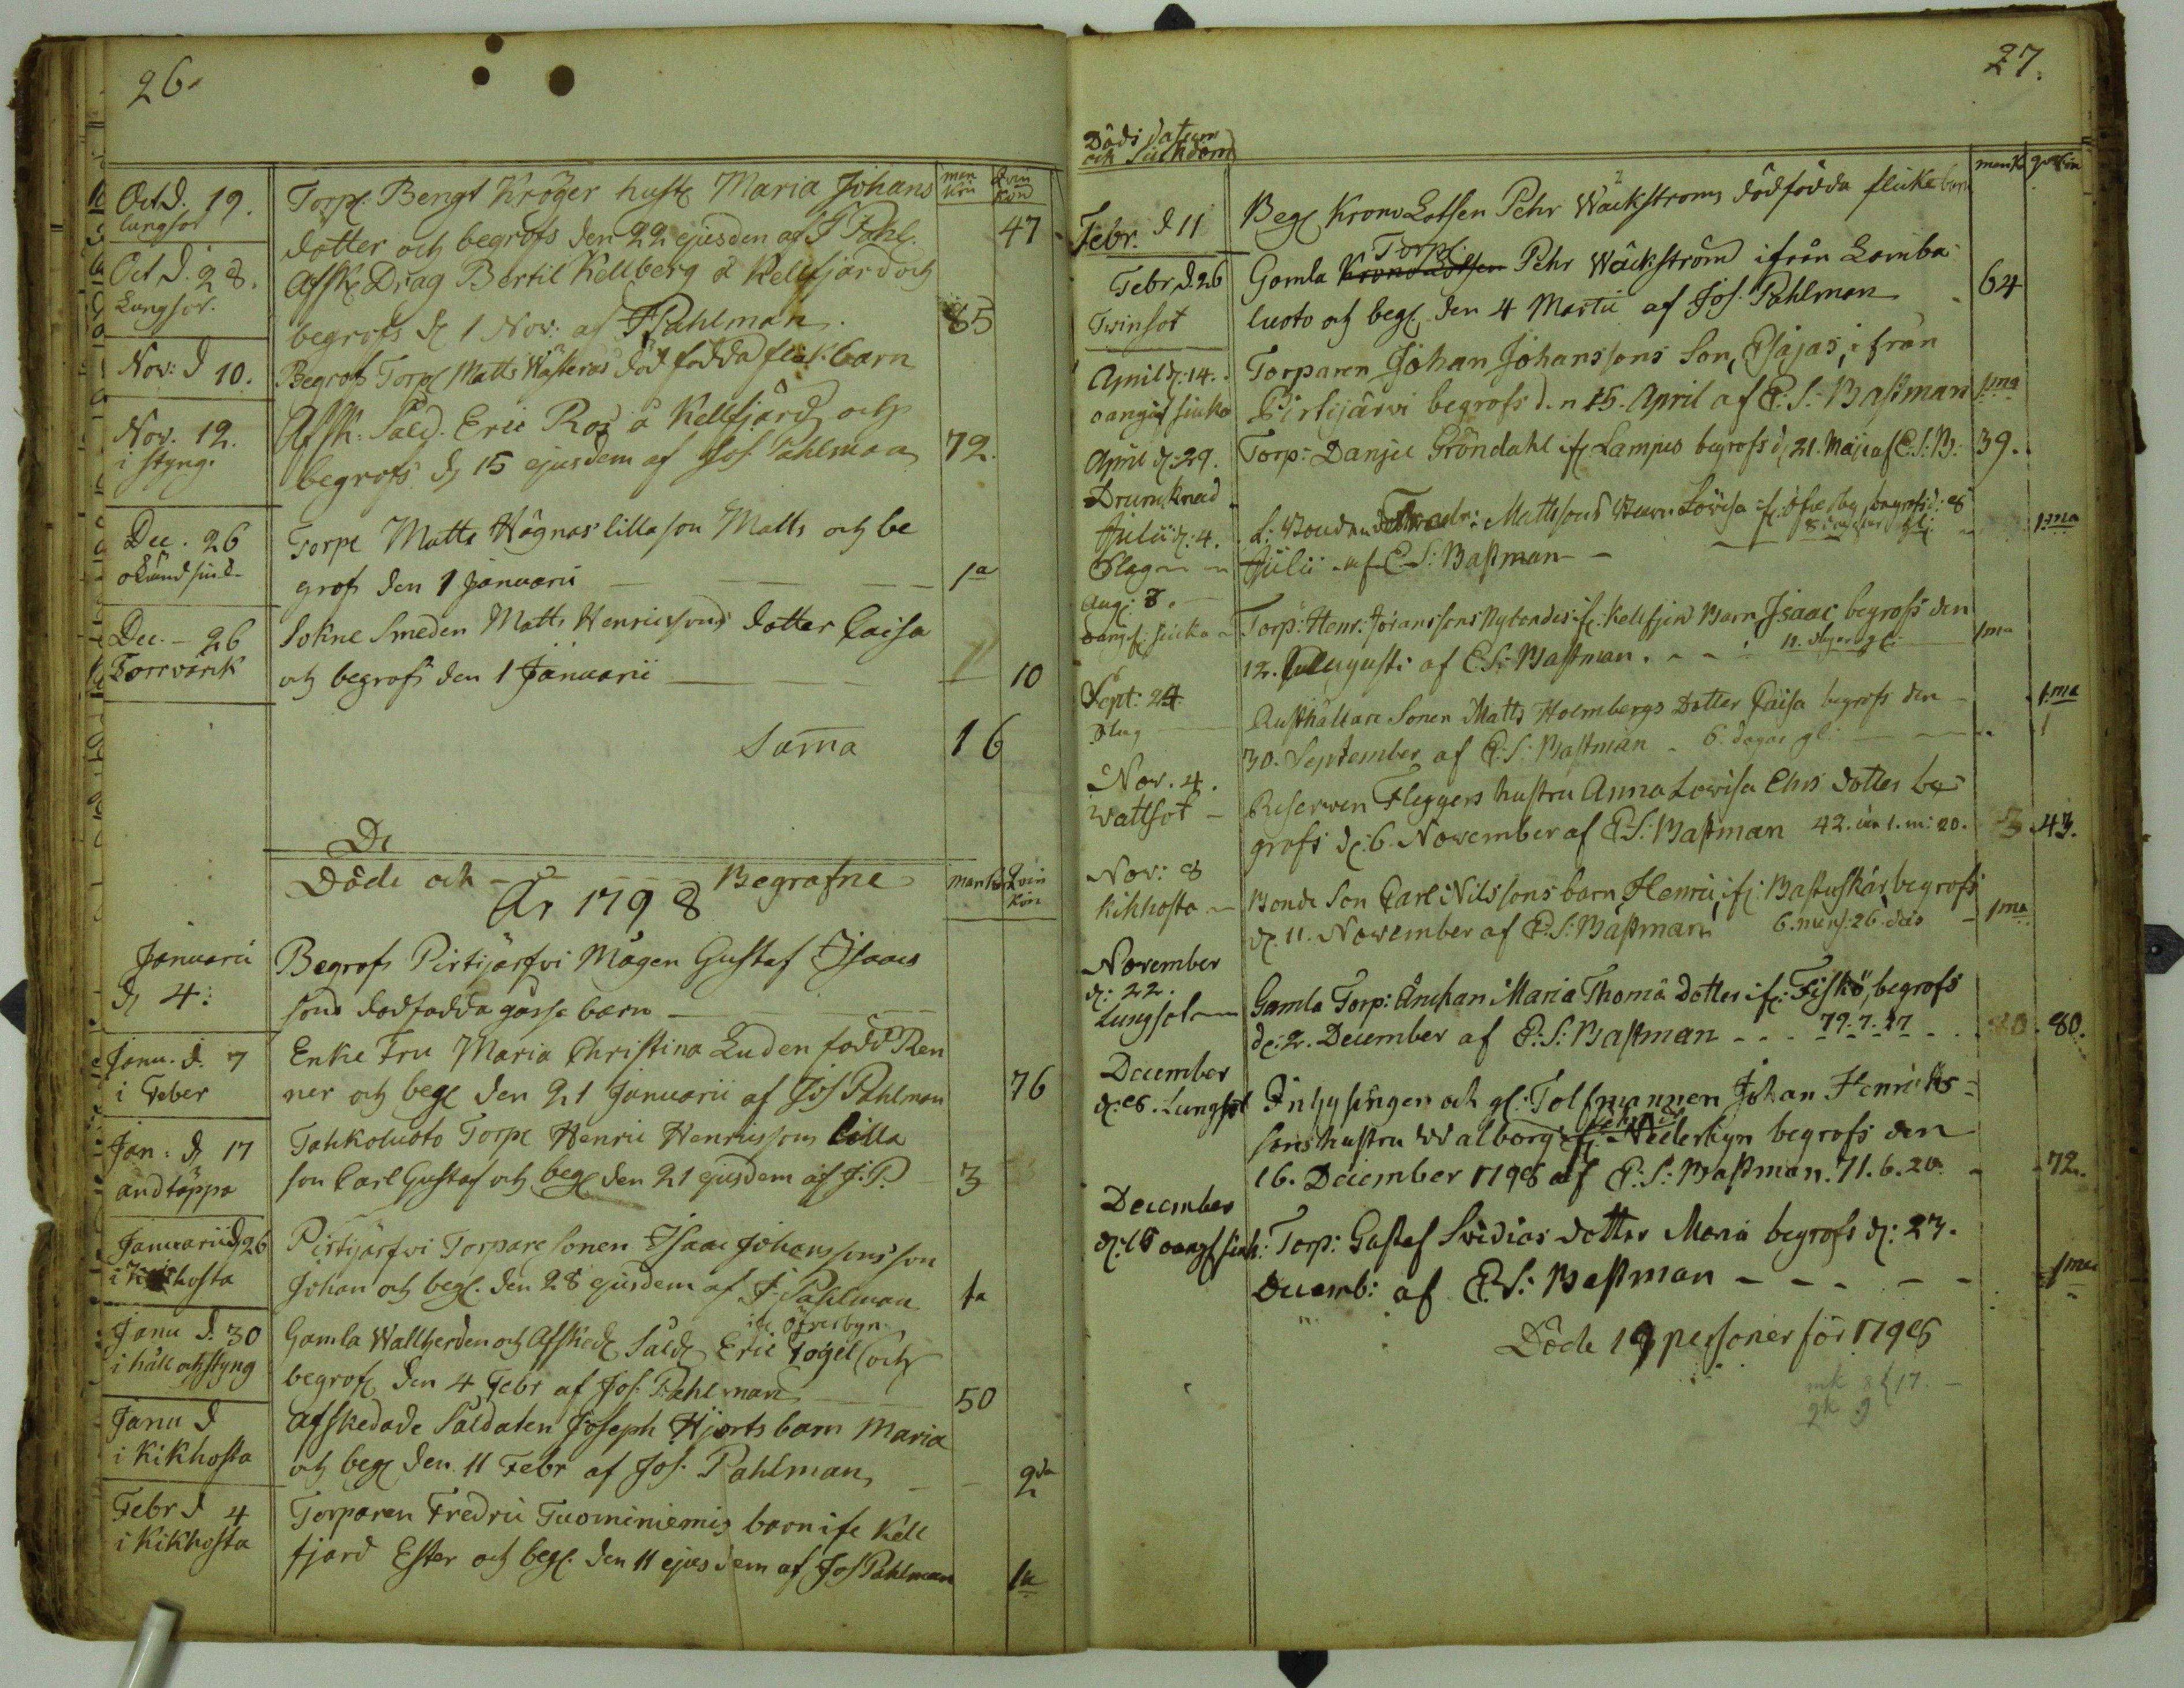 26.
man kön
Qvin kön
Oct d. 19.
lungsot
Torp. Bengt Kröger hust. Maria Johans
dotter och begrofs den 22 ejusdem af J Pahl.
47
Oct d. 28.
Lungsot.
Afsk. Drag Bertil Kellberg å Kellfjärd och
begrofs d. 1 Nov: af J Pahlman.
85
Nov: d 10.
Begrofs Torp. Matts Wästerås död födda flick barn
Nov. 12.
i styng.
Afsk. Sold. Eric Ros å Kellfjärd och
begrofs d. 15 ejusdem af Jos. Pahlman
72.
Dec. 26
okänd siukd.
Torp. Matts Hägnäs lilla son Matts och be
grofs den 1 Januarii
1a
Dec. - 26
Torrvärk
Sokne Smeden Matts Henricssons dotter Caisa
och begrofs den 1 Januarii
10
Sama 16
De
Döde och - - - Begrafne
År 1798
man k
Qvin kön
Januarii
d. 4:
Begrofs Pirtijärfvi Mågen Gustaf Isaacs
sons dödfödda gosse barn
Janu. d. 7
i Feber
Enke Fru Maria Christina Luden född Ren
ner och beg. den 21 Januarii af Jos Pahlman
76
Jan: d. 17
andtäppa
Tahkoluoto Torp. Henric Henricssons lilla
son Carl Gustaf och beg. den 21 ejusdem af J. P.
3
Januarii d. 26
i Kikhosta
Pirtijärfvi Torpare sonen Isaac Johanssons son
Johan och beg. den 28 ejusdem af J. Pahlman
1a
Janu d. 30
i håll och styng
Gamla Wallherden och Afsked. Sald. Eric Fogel (och
if. Öfverbyn
begrof. den 4 Febr af Jos. Pahlman
50
Janu d
i Kikhosta
Afskedade Saldaten Joseph Hjorts barn Maria
och beg. den 11 Febr af Jos. Pahlman
2da
Febr d 4
i Kikhosta
Torparen Fredric Tuominiemis barn ifr. Kell
fjärd Ester och beg. den 11 ejusdem af Jos Pahlman
1a
27.
Döds datum
och Siukdom
man k
qv kön
Febr. d 11
Beg. Krono Lotsen Pehr Wäckströms dödfödda flicke barn
Febr d. 26
Twinsot
Gamla Torp. Pehr Wäckström ifrån Lamba
luoto och beg. den 4 Martii af Jos. Pahlman
64
April d: 14.
oangif siuka
Torparen Johan Johanssons Son, Esajas, ifrån
Pirtijärvi begrofs den 15. April af E: S: Bastman
1ma
April d: 29.
Drunknad
Torp: Danjel Gröndahl if. Lampis begrofs d. 21. Maji af E. S: B:
39.
Julii d: 4.
Slag
Mattsons Barn Lovisa if. Öfverby, begrofs d: 8
Julii af E: S: Bastman
1:ma
Aug: 8.
oangif. siuka
Torp: Henr. Johanssons Nylandes if. Kellfjerd Barn Isaac begrofs den
12. Augusti af E. S: Bastman. 11. dagar gl:
1ma
Sept: 24
Slag
Rusthållare Sonen Matts Holmbergs Dotter Caisa begrofs den
30. September af E: S: Bastman - 6. dagar gl:
1:ma
Nov. 4.
Wattsot
Reserven Fleggers hustru Anna Lovisa Ehrs dotter be
grofs d: 6. November af E: S: Bastman 42. år 1. m: 20.
43.
Nov: 8
Kikhosta
Bonde Son Carl Nilssons barn Henric if. Bastuskär begrofs
d. 11. November af E: S: Bastman 6. mens: 26. dies
1ma
November
d: 22.
Lungsot
Gamla Torp: Änckan Maria Thomä dotter if: Fiskö, begrofs
d: 2. December af E: S: Bastman - - - 79. 7. 27
80.
December
d: 8. Lungsot
Inhysingen och gl: Tolfmannen Johan Henriks=
sons hustru Walborg if: Nederbyn begrofs den
16. December 1798 af E: S: Bastman. 71. 6. 20.
72.
December
d: 18 oangf siuk:
Torp: Gustaf Svidias dotter Maria begrofs d: 27.
Decemb: af E. S: Bastman - - - - -
1ma
Döde 19 personer för 1798
mk 8 { 17. -
qk 9